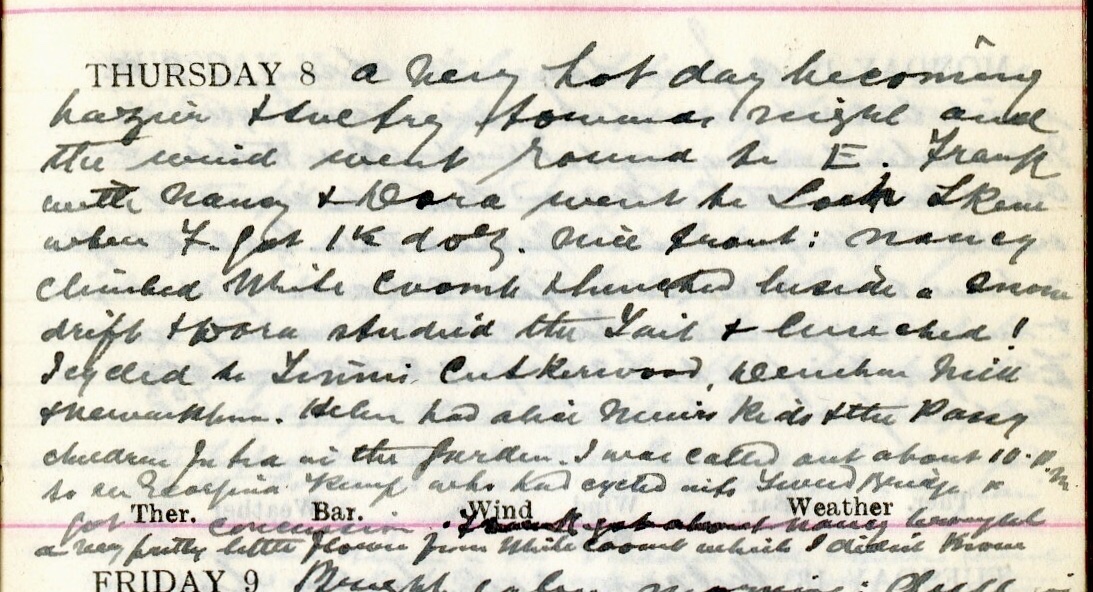 THURSDAY 8 a very hot day becoming
hazier & sultry towards night and
the wind went round to E. Frank
with Nancy & Dora went to Loch Skene
when F. got 1½ doz. nice trout: Nancy
climbed White Coomb & lunched beside a snow
drift & Dora studied the Tail & lunched!
I cycled to Linns, Cutkerwood, Mill
& Helen had Muir's Kids & the
children to tea in the Garden. I was called out about 10 P.M.
to see Georgina Kemp who had cycled into Tweed Bridge &
got concussion. Nancy brought
Ther. Bar. Wind Weather
a very pretty little flower from White Coomb which I didn't know
FRIDAY 9 Bright morning: